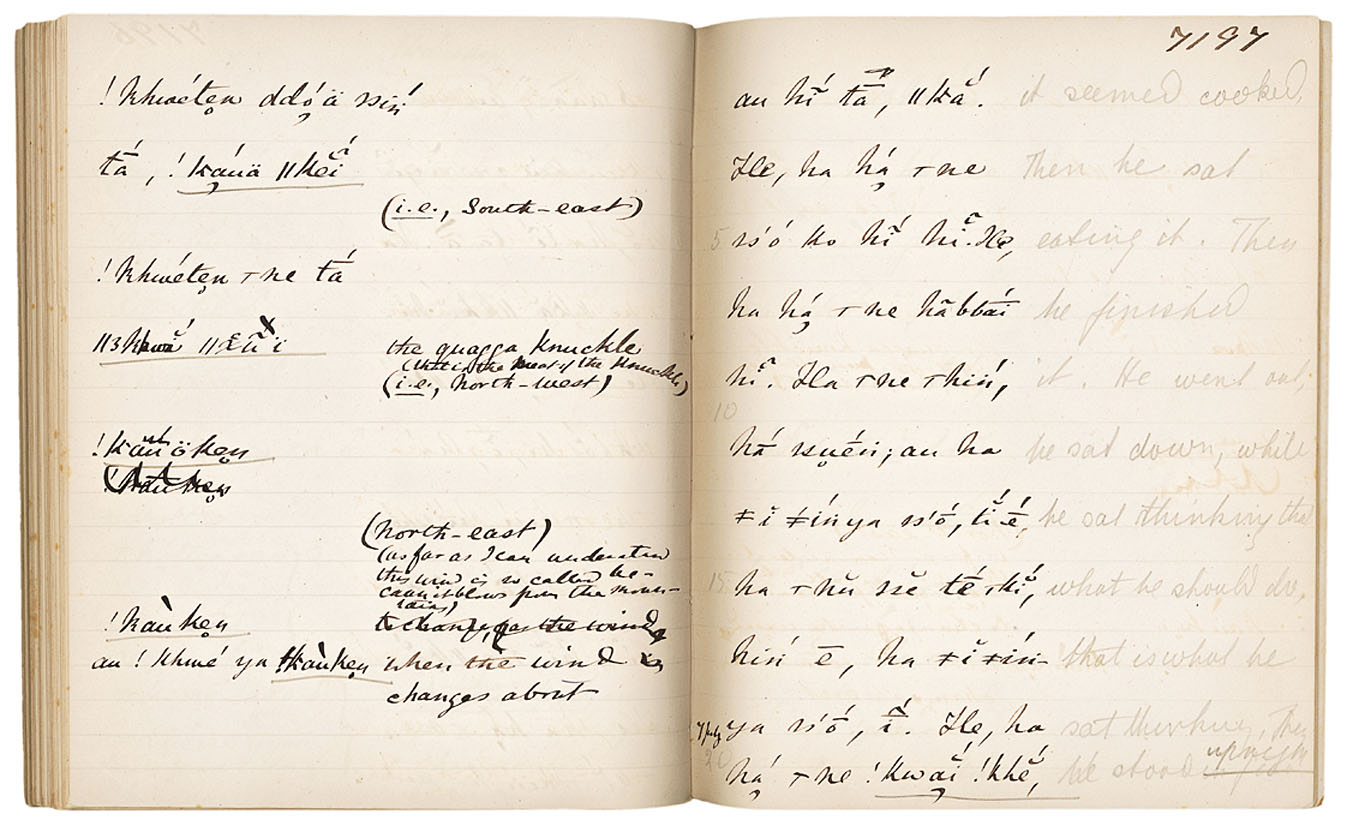 !khwétẹn ddọ́ä ssiń
tá, !kạ́uä ǁkẽĭ́
(i.e., South-east)
!khwétẹn ⊤ne tá
the quagga knuckle
(that is the meat of the knuckle)
(i.e., North-west)
(North-east)
(as far as I can understand
this wind is so called be-
cause it blows from the moun-
tains)
!kàukẹn to change, as the wind
au !khwé ya !kàukẹn when the wind
changes about
7197
au hĭ́ tā́, ǁkắ. it seemed cooked.
He, ha hạ́ ⊤ne Then he sat
5 ss'ó ko hĭ́ hĭ̃. He, eating it. Then
ha hạ́ ⊤ne hābbāí he finished
hĭ̃. Ha ⊤ne ⊤hiń, it. He went out,
10
há ssụēń; au ha he sat down, while
≠ĭ ≠íńya ss'ó, tĭ́ ḗ, he sat thinking that
15 ha ⊤nŭ ssĕ té ⊤kĭ́, what he should do,
hiń ē, ha ≠ĭ ≠íń- that is what he
ya ss'ó, ĭ̃́. He, ha sat thinking, Then
20 hạ́ ⊤ne !kwạĭ́ !khĕ́, he stood upright